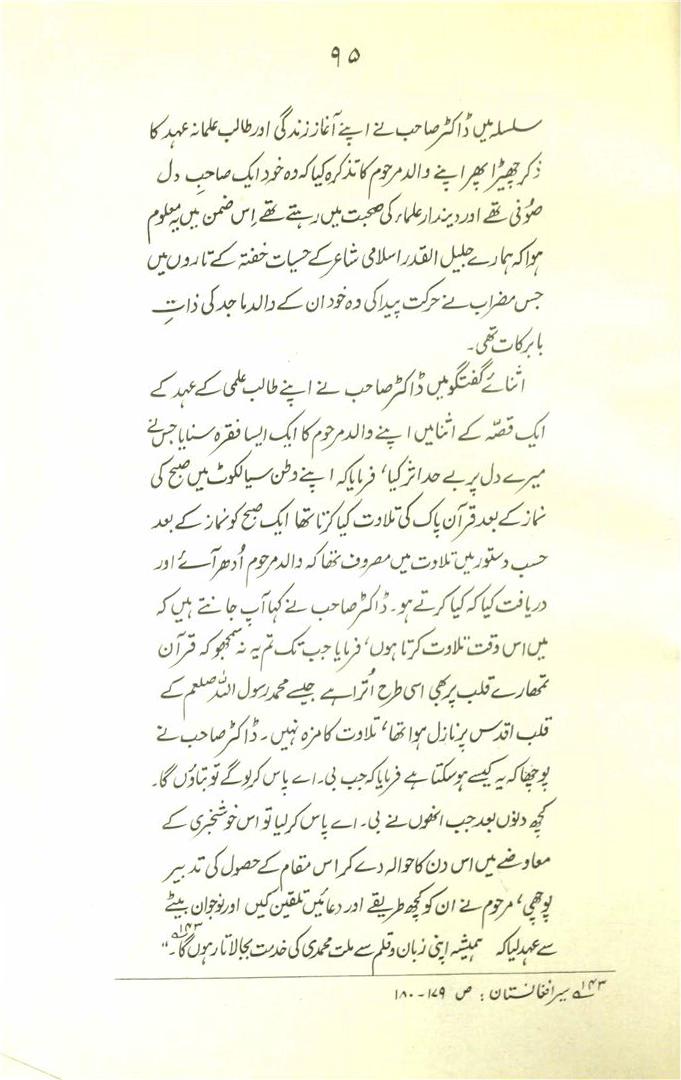 ۹۵
سلسلہ میں ڈاکٹر صاحب نے اپنے آغاز زندگی اور طالب علمانہ عہد کا
ذکر چھیڑا پھر اپنے والد مرحوم کا تذکرہ کیا کہ وہ خود ایک صاحبِ دل
صُوفی تھے اور دیندار علماء کی صحبت میں رہتے تھے اِس ضمن میں یہ معلوم
ہوا کہ ہمارے جلیل القدر اسلامی شاعر کے حسیات خفتہ کے تاروں میں
جس مضراب نے حرکت پیدا کی وہ خود ان کے والد ماجد کی ذاتِ
بابرکات تھی۔
اثنائے گفتگو میں ڈاکٹر صاحب نے اپنے طالب علمی کے عہد کے
ایک قصّہ کے اثنا میں اپنے والد مرحوم کا ایک ایسا فقرہ سنایا جس نے
میرے دل پر بے حد اثر کیا، فرمایا کہ اپنے وطن سیالکوٹ میں صبح کی
نماز کے بعد قرآن پاک کی تلاوت کیا کرتا تھا ایک صبح کو نماز کے بعد
حسب دستور میں تلاوت میں مصروف تھا کہ والد مرحوم اُدھر آئے اور
دریافت کیا کہ کیا کرتے ہو۔ ڈاکٹر صاحب نے کہا آپ جانتے ہیں کہ
میں اس وقت تلاوت کرتا ہوں، فرمایا جب تک تم یہ نہ سمجھو کہ قرآن
تمھارے قلب پر بھی اسی طرح اُترا ہے جیسے محمد رسول اللہ صلعم کے
قلب اقدس پر نازل ہوا تھا، تلاوت کا مزہ نہیں۔ ڈاکٹر صاحب نے
پوچھا کہ یہ کیسے ہو سکتا ہے فرمایا کہ جب بی۔اے پاس کر لو گے تو بتاؤں گا۔
کچھ دنوں بعد جب انھوں نے بی۔اے پاس کر لیا تو اس خوشخبری کے
معاوضے میں اس دن کا حوالہ دے کر اس مقام کے حصول کی تدبیر
پوچھی، مرحوم نے ان کو کچھ طریقے اور دعائیں تلقین کیں اور نوجوان بیٹے
سے عہد لیا کہ ہمیشہ اپنی زبان و قلم سے ملت محمدی کی خدمت بجا لاتا رہوں گا۔"۱۴۳
۱۴۳ سیر افغانستان: ص ۱۷۹-۱۸۰